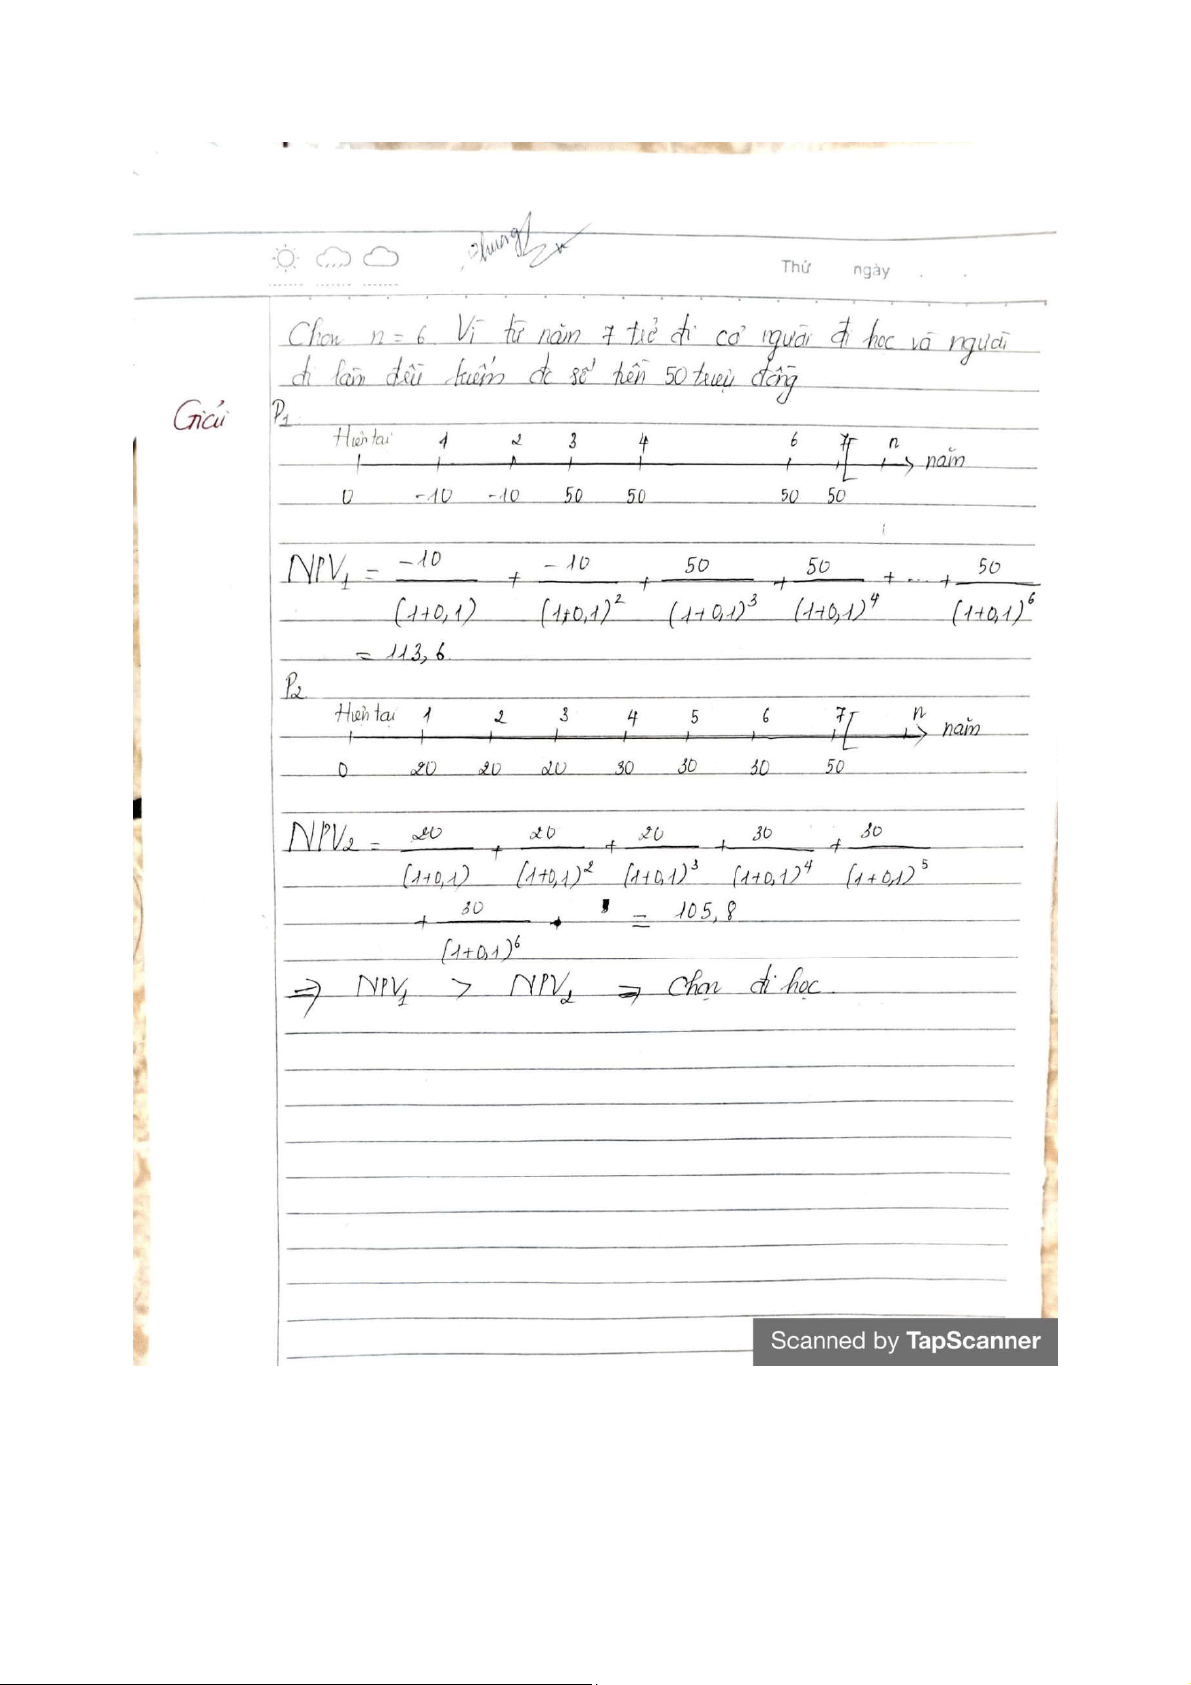 Thứ ngày . .
Chọn n = 6 Vì từ năm 7 trở đi cả người đi học và người
đi làm đều kiếm đc số tiền 50 triệu đồng
Giải P1
Hiện tại 1 2 3 4 6 7 n năm
0 -10 -10 50 50 50 50
NPV1 = -10/(1+0,1) + -10/(1+0,1)^2 + 50/(1+0,1)^3 + 50/(1+0,1)^4 + ... + 50/(1+0,1)^6
= 113,6
P2
Hiện tại 1 2 3 4 5 6 7 n năm
0 20 20 20 30 30 30 50
NPV2 = 20/(1+0,1) + 20/(1+0,1)^2 + 20/(1+0,1)^3 + 30/(1+0,1)^4 + 30/(1+0,1)^5
+ 30/(1+0,1)^6 = 105,8
⇒ NPV1 > NPV2 ⇒ Chọn đi học.
Scanned by TapScanner